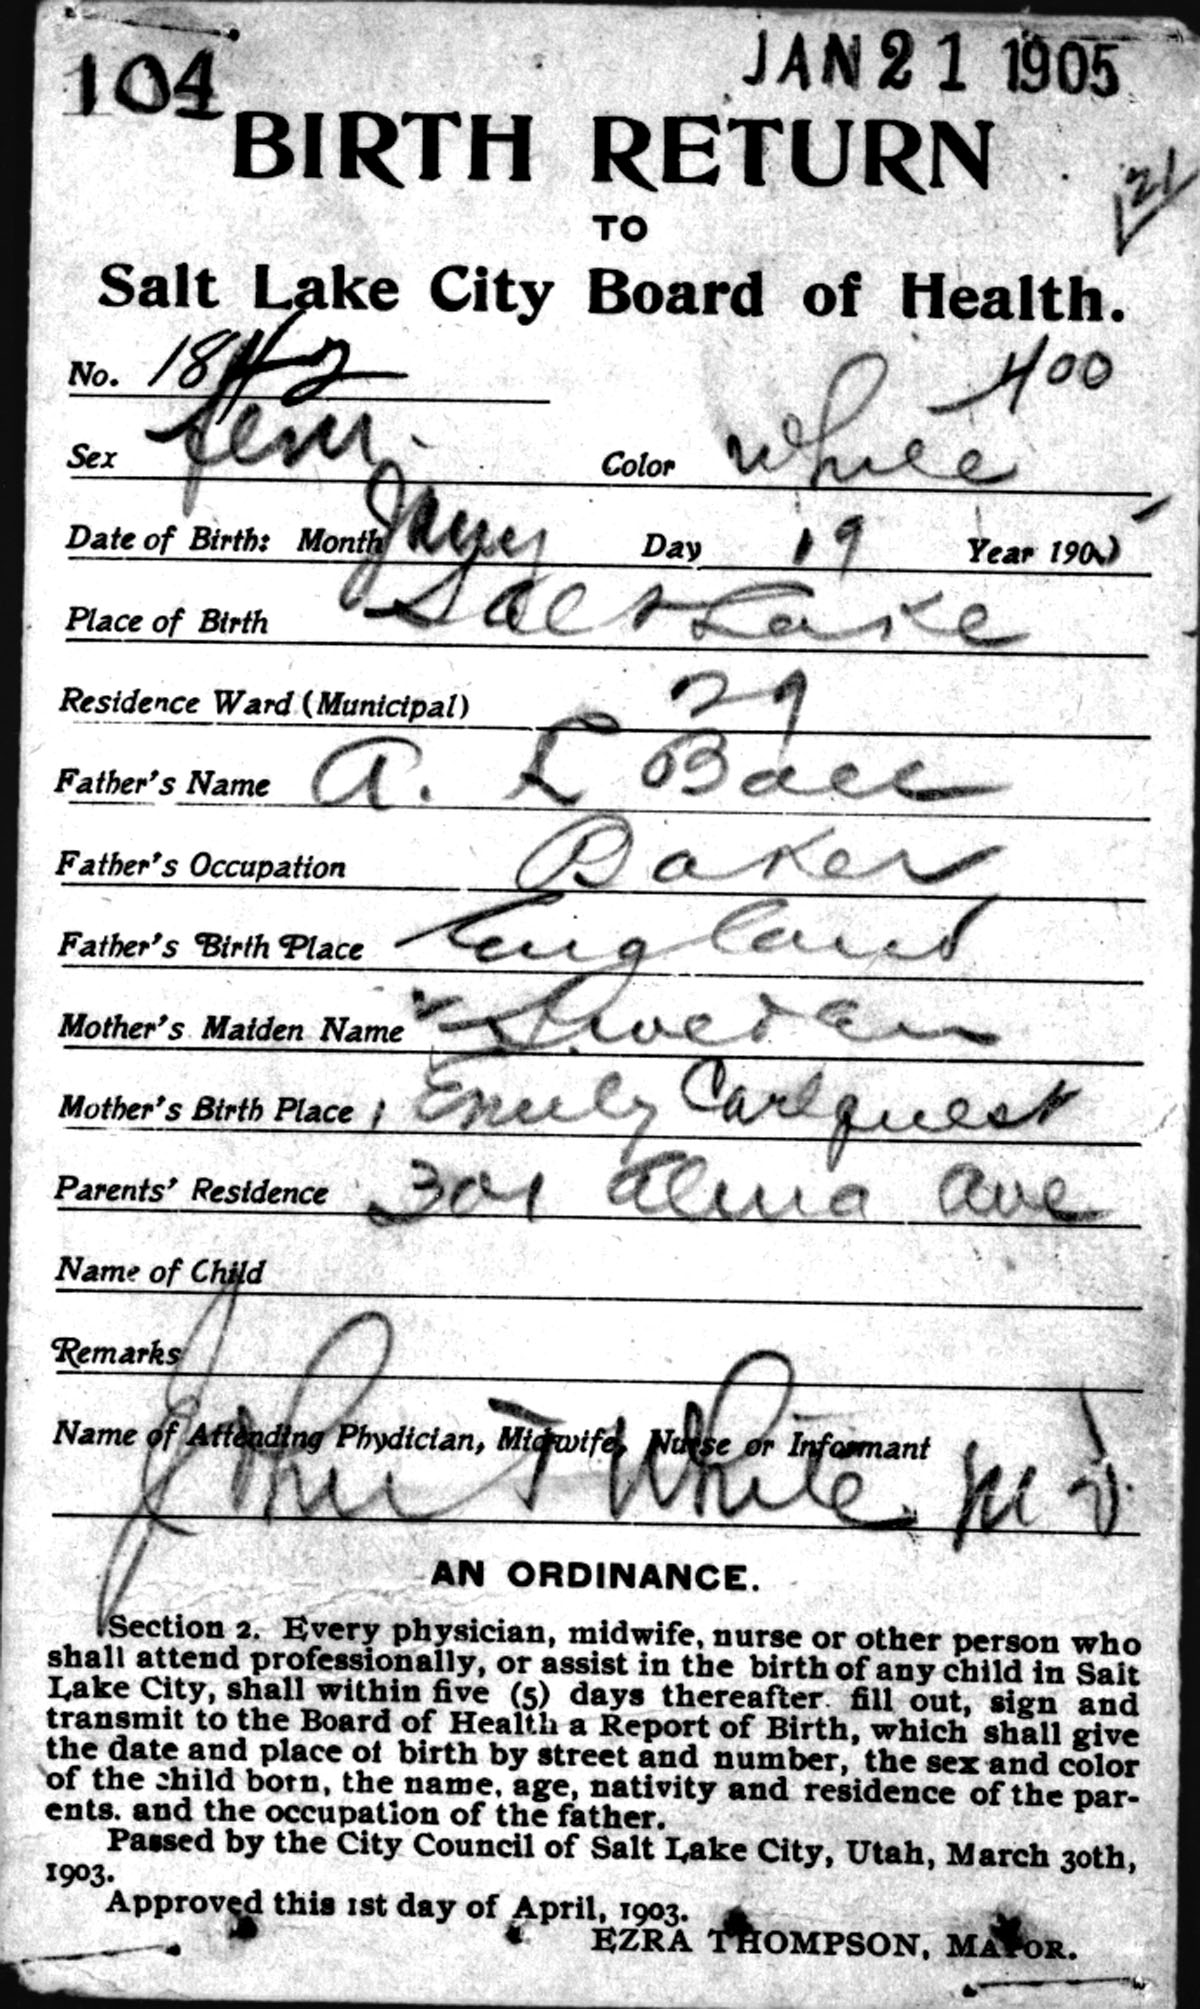 104 JAN 21 1905
BIRTH RETURN
21
TO
Salt Lake City Board of Health.
No. 1842 400
Sex fem. Color white
Date of Birth: Month Jany Day 19 Year 190
Place of Birth Salt Lake
Residence Ward (Municipal) 29
Father's Name A. L Ball
Father's Occupation Baker
Father's Birth Place England
Mother's Maiden Name Sweden
Mother's Birth Place Emily Carlquest
Parents' Residence 301 Alma Ave
Name of Child
Remarks
Name of Attending Phydician, Midwife, Nurse or Informant
John T White M D.
AN ORDINANCE.
Section 2. Every physician, midwife, nurse or other person who
shall attend professionally, or assist in the birth of any child in Salt
Lake City, shall within five (5) days thereafter fill out, sign and
transmit to the Board of Health a Report of Birth, which shall give
the date and place of birth by street and number, the sex and color
of the child born, the name, age, nativity and residence of the par-
ents. and the occupation of the father.
Passed by the City Council of Salt Lake City, Utah, March 30th,
1903.
Approved this 1st day of April, 1903.
EZRA THOMPSON, MAYOR.